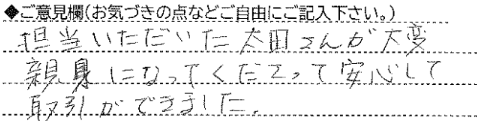 ◆ご意見欄(お気づきの点などご自由にご記入下さい。)
担当いただいた太田さんが大変
親身になってくださって安心して
取引ができました。